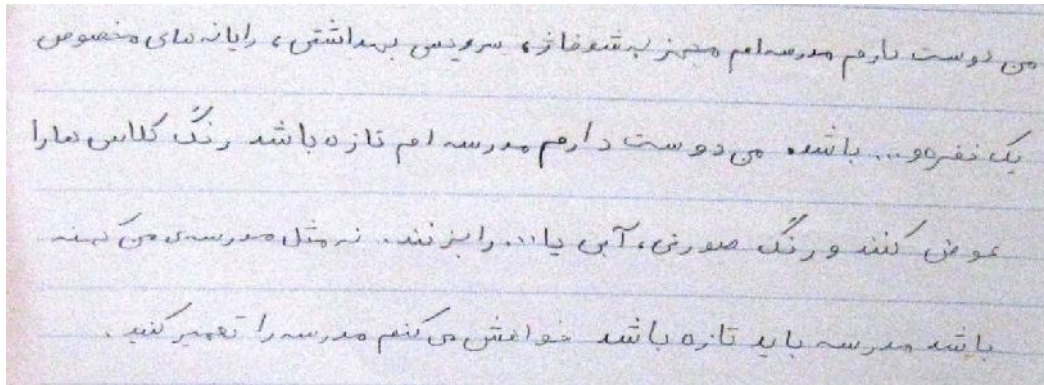 من دوست دارم مدرسه ام مجهز به شوفاژ، سرویس بهداشتی، رایانه های مخصوص
یک نفره و... باشد. من دوست دارم مدرسه ام تازه باشد رنگ کلاس ها را
عوض کنند و رنگ صورتی، آبی یا... را بزنند. نه مثل مدرسه ی من کهنه
باشد مدرسه باید تازه باشد خواهش می کنم مدرسه را تعمیر کنید.